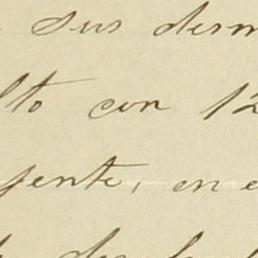 sus derm
lto con 12
gente, en e